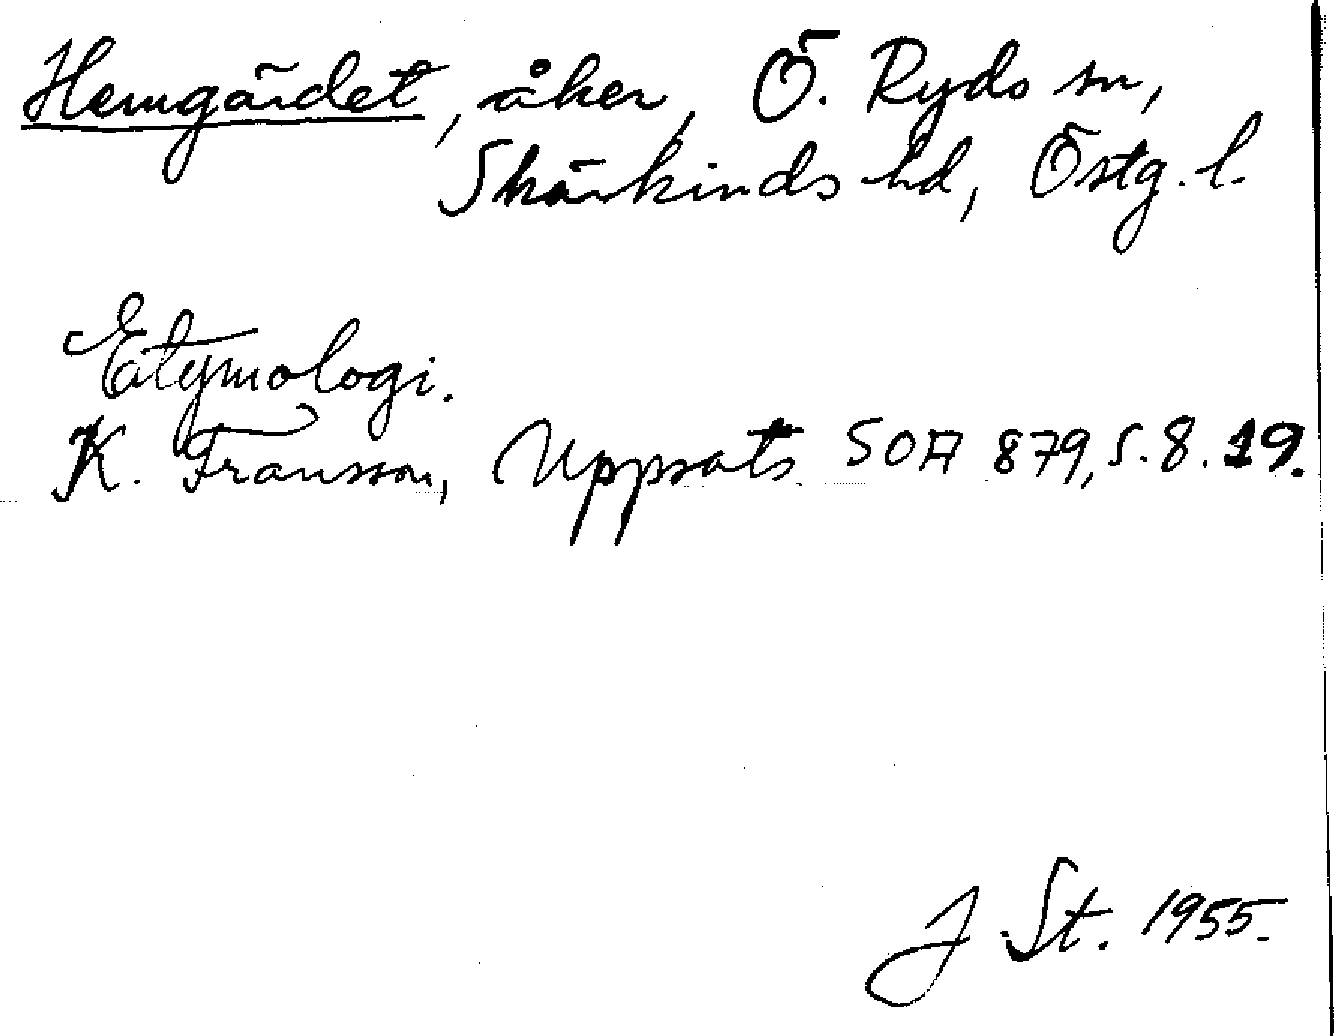 Hemgärdet, åker, Ö. Ryds sn,
Skärkinds hd, Östg. l.
Etymologi.
K. Fransson, Uppsats SOA 879, s. 8. 19.
J. St. 1955.